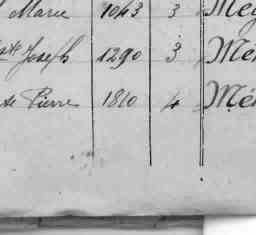 Marie 1043 3
Joseph 1290 3 Mé
Pierre 1810 4 Mé